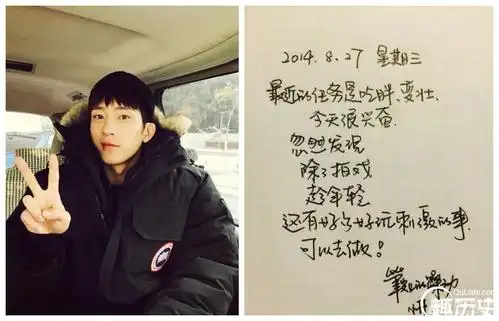 2014.8.27 星期三
最近的任务是吃胖、变壮.
今天很兴奋.
忽然发现
除了拍戏
趁年轻
还有好多好玩刺激的事.
可以去做!
QuLishi.com
趣历史